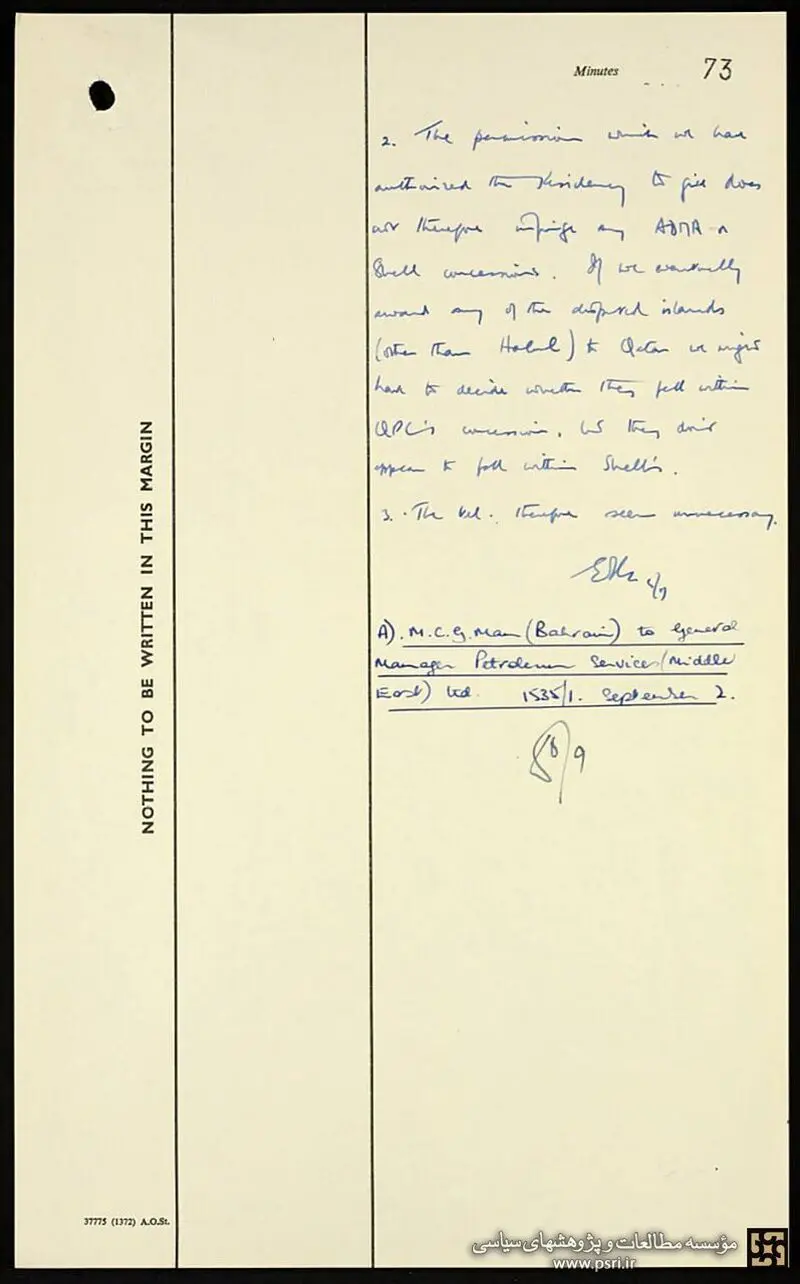 Minutes
73
2. The permission which we have
authorised the Residency to give does
not therefore infringe any ADMA or
Shell concessions. If we eventually
award any of the disputed islands
(other than Halul) to Qatar we might
have to decide whether they fell within
QPC's concession, but they don't
appear to fall within Shell's.
3. The tel. therefore seems unnecessary.
A). M.C.G. Man (Bahrain) to General
Manager Petroleum Services (Middle
East) Ltd. 1535/1. September 2.
NOTHING TO BE WRITTEN IN THIS MARGIN
37775 (1372) A.O.St.
مؤسسه مطالعات و پژوهشهای سیاسی
www.psri.ir